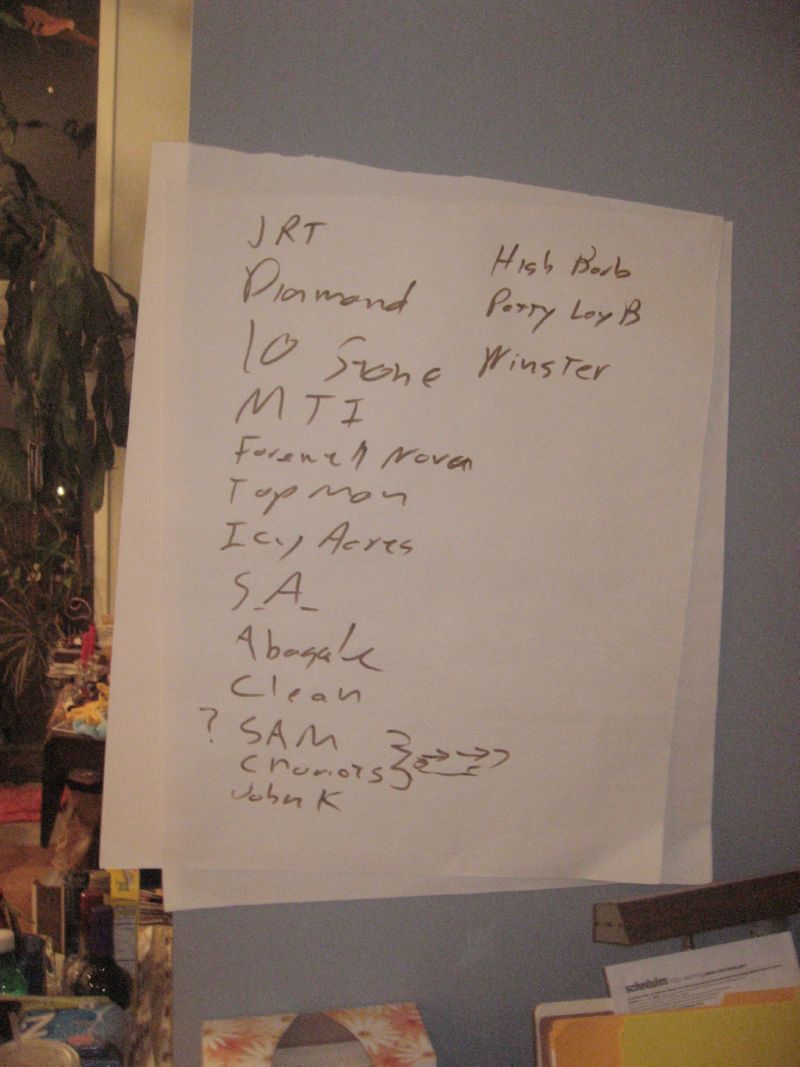 JRT
Diamond
10 Stone
MTI
Farewell Nova
Top Man
Icy Acres
S.A.
Abagale
Clean
? SAM
Chariots
John K
High Barb
Patty Lay B
Winster
schedules